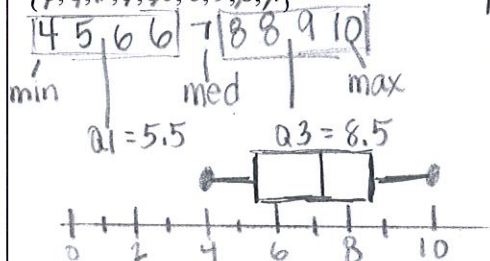 4 5 6 6 7 8 8 9 10
min med max
Q1 = 5.5 Q3 = 8.5
0 2 4 6 8 10